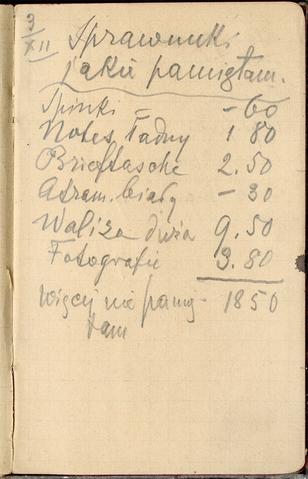 3/XII Sprawunki
jakie pamiętam.
Spinki – – 60
Notes ładny 1 80
Brieftasche 2.50
Atram. biały – 30
Waliza duża 9.50
Fotografie 3.80
Więcej nie pamię- 1850
tam